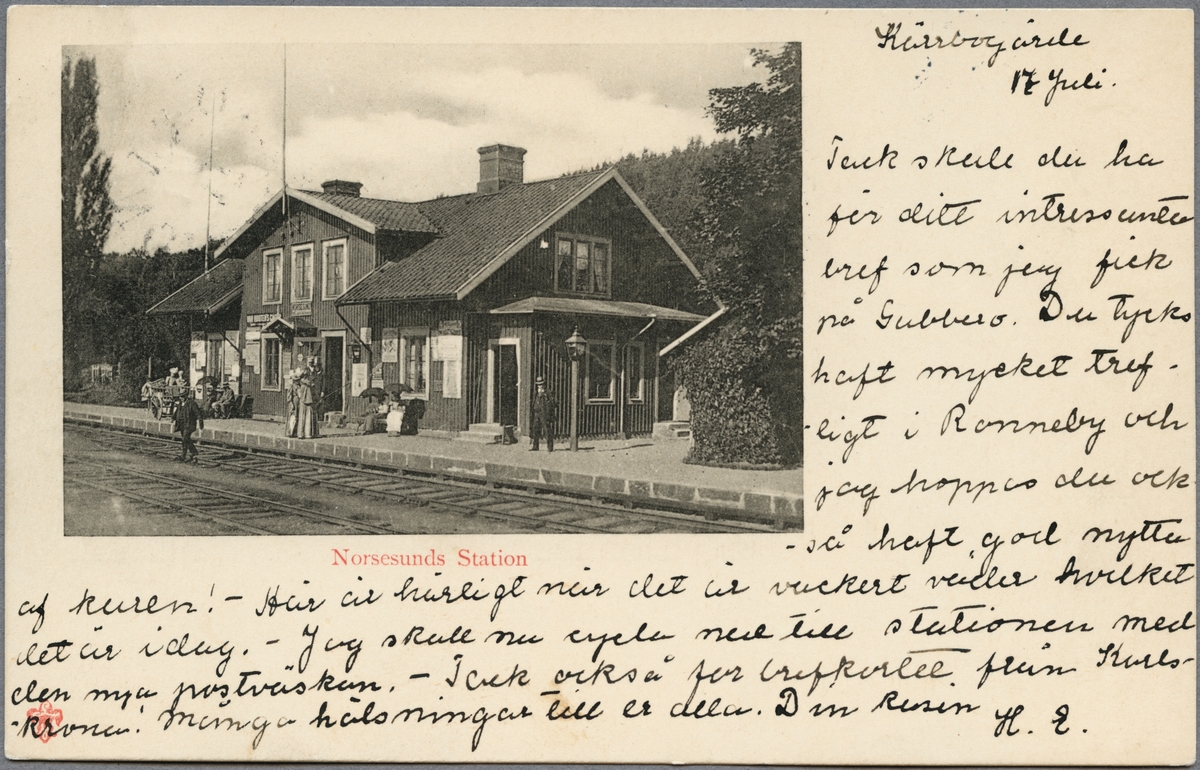 Kärrbogärde
17 Juli.
Tack skall du ha
för ditt intressanta
bref som jag fick
på Gubbero. Du tycks
haft mycket tref-
-ligt i Ronneby och
jag hoppas du ock
-så haft god nytta
af kuren! - Här är härligt när det är vackert väder hvilket
det är idag. - Jag skall nu cykla ned till stationen med
den nya postväskan. - Tack också för brefkortet från Karls-
-krona! Många hälsningar till er alla. Din kusin
H. E.
NORSESUND
Norsesunds Station